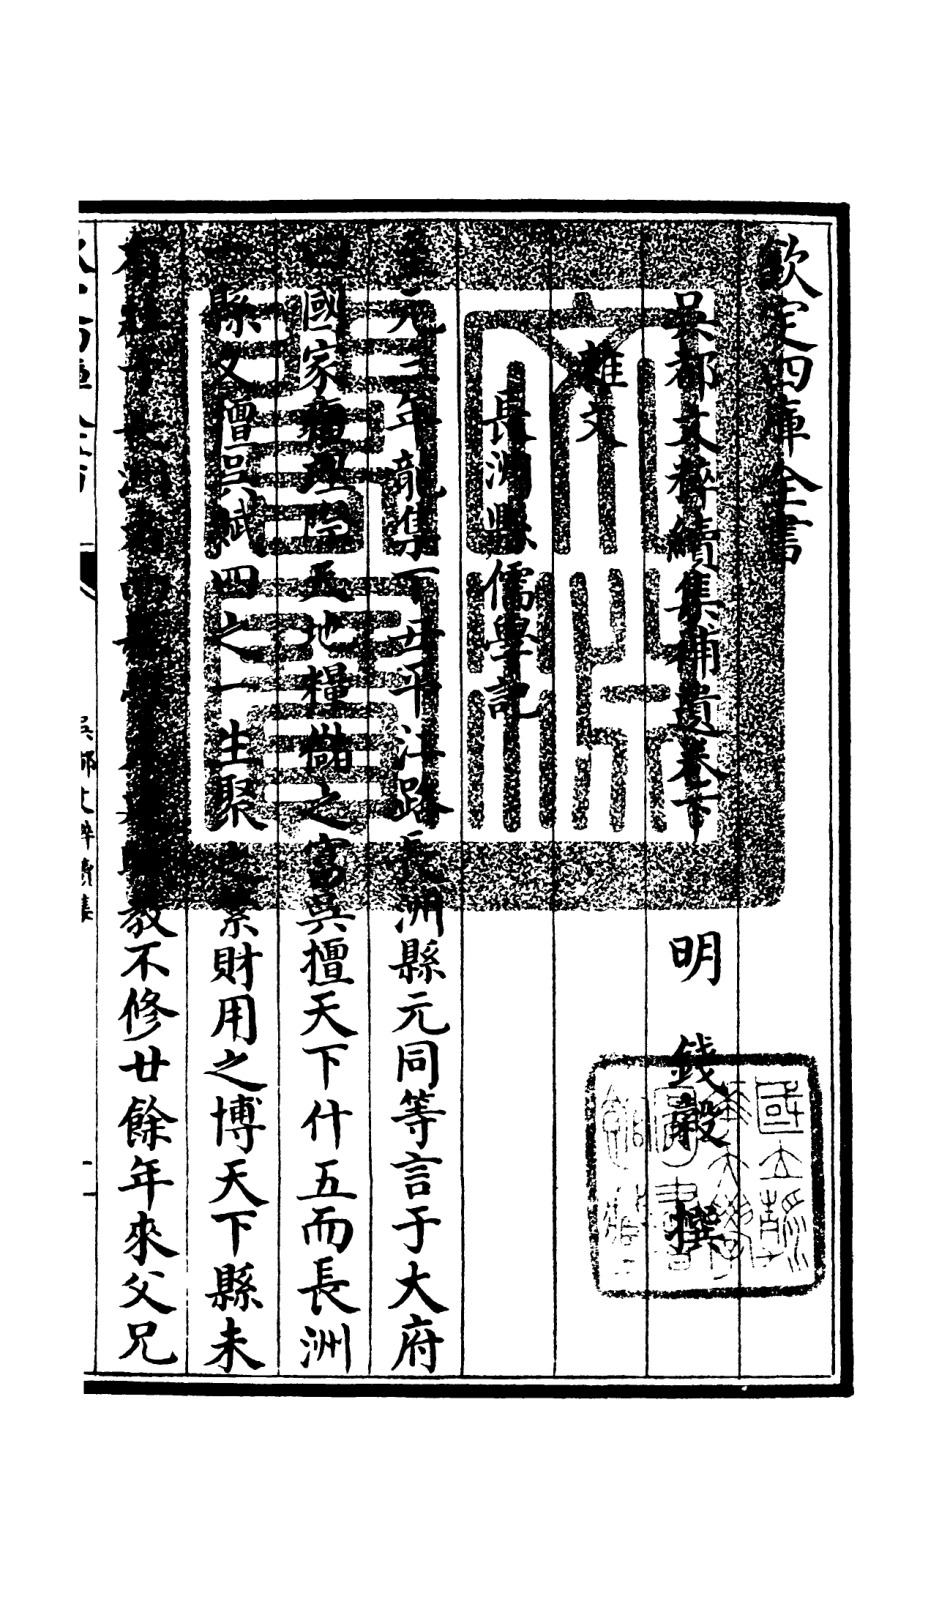 欽定四庫全書
吳都文粹續集補遺卷下
明 錢穀 撰
雜文
長洲縣儒學記
至元三年龍集丁丑平江路長洲縣元同等言于大府
曰國家疆理際天地糧儲之富吳擅天下什五而長洲
一縣又擅吳賦四之一生聚之繁財用之博天下縣未
有 長洲 教不修廿餘年來父兄
吳都文粹續集